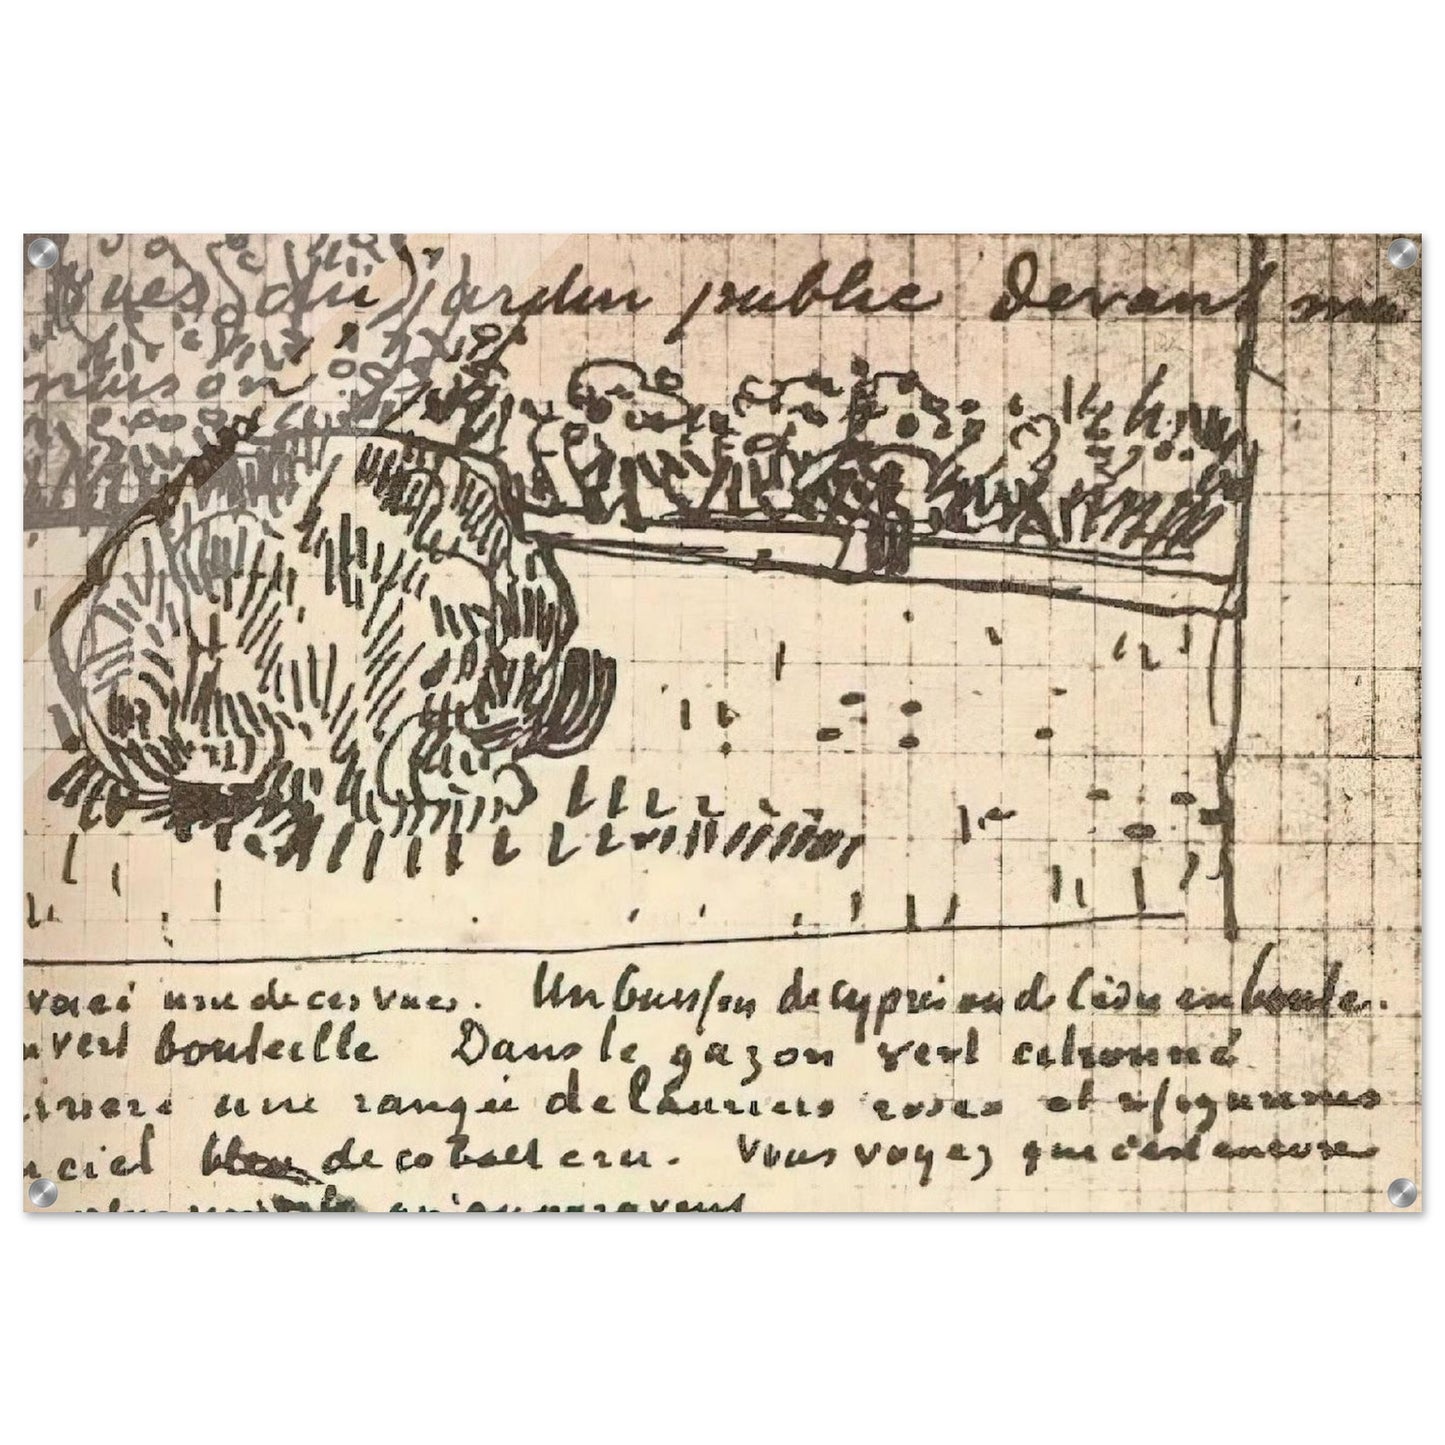 vues du jardin public devant ma
maison
voici une de ces vues. Un buisson de cyprès ou de cèdre en boule.
vert bouteille Dans le gazon vert citronné
une rangée de Lauriers roses et
ciel bleu de cobalt cru. Vous voyez que c'est encore